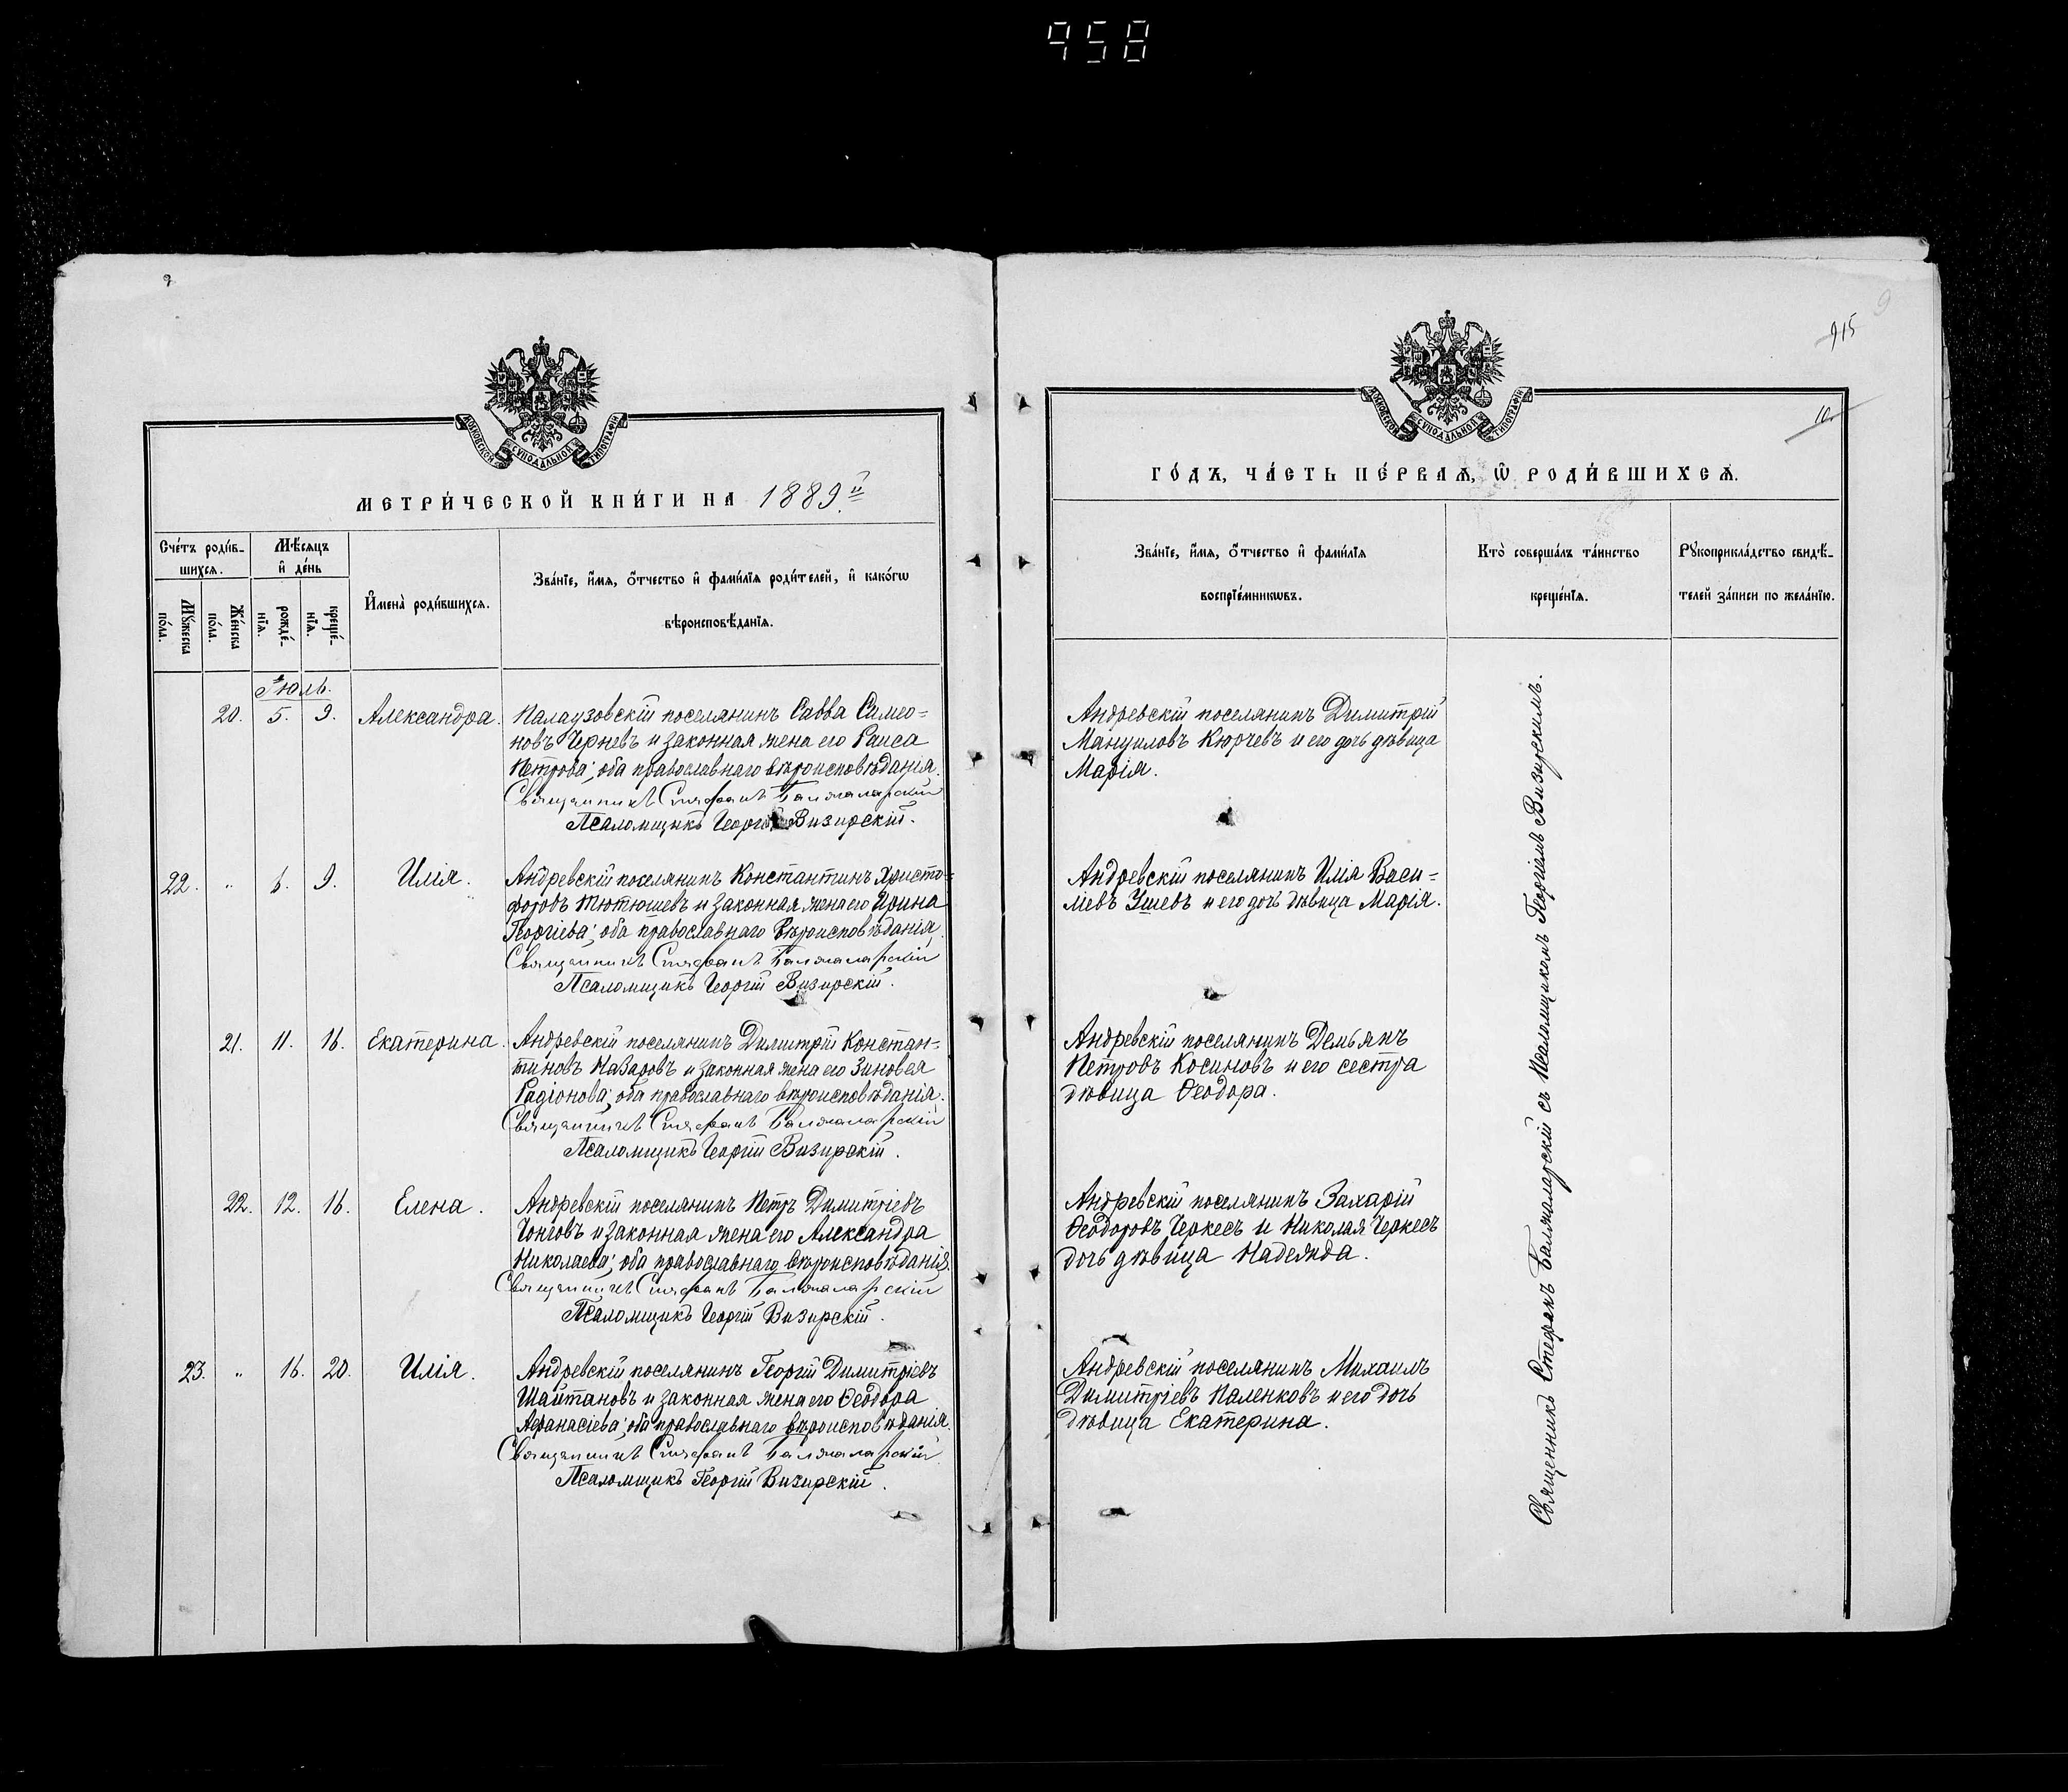 958
9
915
10.
МОСКОВСКОЙ СѴНОДАЛЬНОЙ ТИПОГРАФІИ
МЕТРИ́ЧЕСКОЙ КНИ́ГИ НА 1889й.
Сче́тъ роди́в-
шихсѧ.
Мѣ́сѧцъ
и҆ де́нь
Мꙋ́жеска
по́ла.
Же́нска
по́ла.
рожде́-
нїѧ.
креще́-
нїѧ.
И҆мена̀ роди́вшихсѧ.
Зва́нїе, и҆́мѧ, ѻ҆́тчество и҆ фами́лїѧ роди́телей, и҆ како́гѡ
вѣроисповѣ́данїѧ.
Іюль.
20. 5. 9. Александра.
Палаузовскій поселянинъ Савва Симео=
новъ Черневъ и законная жена его Раиса
Петрова; оба православнаго вѣроисповѣданія.
Священникъ Стефанъ Балжаларскій
Псаломщикъ Георгій Визирскій.
22. „ 6. 9. Илія.
Андревскій поселянинъ Константинъ Христо=
форовъ Тютюшевъ и законная жена его Ирина
Георгіева; оба православнаго вѣроисповѣданія.
Священникъ Стефанъ Балжаларскій
Псаломщикъ Георгій Визирскій.
21. 11. 16. Екатерина.
Андревскій поселянинъ Димитрій Констан=
тиновъ Назаровъ и законная жена его Зиновея
Радіонова; оба православнаго вѣроисповѣданія.
Священникъ Стефанъ Балжаларскій
Псаломщикъ Георгій Визирскій.
22. 12. 16. Елена.
Андревскій поселянинъ Петръ Димитріевъ
Чонговъ и законная жена его Александра
Николаева; оба православнаго вѣроисповѣданія.
Священникъ Стефанъ Балжаларскій
Псаломщикъ Георгій Визирскій.
23. „ 16. 20. Илія.
Андревскій поселянинъ Георгій Димитріевъ
Шайтановъ и законная жена его Ѳеодора
Афанасіева; оба православнаго вѣроисповѣданія.
Священникъ Стефанъ Балжаларскій
Псаломщикъ Георгій Визирскій.
МОСКОВСКОЙ СѴНОДАЛЬНОЙ ТИПОГРАФІИ
ГО́ДЪ, ЧА́СТЬ ПЕ́РВАѦ, Ѡ҆ РОДИ́ВШИХСѦ.
Зва́нїе, и҆́мѧ, ѻ҆́тчество и҆ фами́лїѧ
воспрїе́мникѡвъ.
Кто̀ соверша́лъ та́инство
креще́нїѧ.
Рꙋкоприкла́дство свидѣ́-
телей за́писи по жела́нїю.
Андревскій поселянинъ Димитрій
Мануиловъ Кюрчевъ и его дочь дѣвица
Марія.
Андревскій поселянинъ Илія Васи=
ліевъ Ушевъ и его дочь дѣвица Марія.
Андревскій поселянинъ Демьянъ
Петровъ Косиновъ и его сестра
дѣвица Ѳеодора.
Андревскій поселянинъ Захарій
Ѳеодоровъ Черкесъ и Николая Черкесъ
дочь дѣвица Надежда.
Андревскій поселянинъ Михаилъ
Димитріевъ Паленковъ и его дочь
дѣвица Екатерина.
Священникъ Стефанъ Балжаларскій съ псаломщикомъ Георгіемъ Визирскимъ.